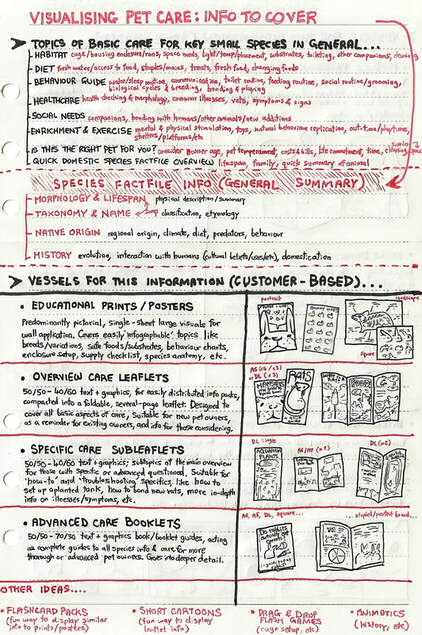 VISUALISING PET CARE: INFO TO COVER
TOPICS OF BASIC CARE FOR KEY SMALL SPECIES IN GENERAL...
HABITAT cage/housing enclosure/runs, space needs, light/temp/placement, substrates, toileting, other companions, cleaning
DIET fresh water/access to food, staples/mains, treats, fresh food, changing foods
BEHAVIOUR GUIDE wake/sleep routine, communication, toilet routine, feeding routine, social routine/grooming,
biological cycles & breeding, bonding & playing
HEALTHCARE health checking & morphology, common illnesses, vets, symptoms & signs
SOCIAL NEEDS companions, bonding with humans/other animals/new additions
ENRICHMENT & EXERCISE mental & physical stimulation, toys, natural behaviour replication, out-time/playtime,
shelters/platforms/etc.
IS THIS THE RIGHT PET FOR YOU? consider owner age, pet temperament, costs & bills, life commitment, time, space
QUICK DOMESTIC SPECIES FACTFILE OVERVIEW lifespan, family, quick summary of animal
SPECIES FACTFILE INFO (GENERAL SUMMARY)
MORPHOLOGY & LIFESPAN physical description/summary
TAXONOMY & NAME classification, etymology
NATIVE ORIGIN regional origin, climate, diet, predators, behaviour
HISTORY evolution, interaction with humans (cultural beliefs/uses/etc), domestication
VESSELS FOR THIS INFORMATION (CUSTOMER-BASED)...
• EDUCATIONAL PRINTS / POSTERS
Predominantly pictorial, single-sheet large visuals for
wall application. Covers easily 'infographable' topics like
breeds/variations, safe foods/substrates, behaviour charts,
enclosure setup, supply checklist, species anatomy, etc.
portrait
landscape
square
• OVERVIEW CARE LEAFLETS
50/50 - 40/60 text + graphics, for easily distributed info packs,
compacted into a foldable, several-page leaflet. Designed to
cover all basic aspects of care, suitable for new pet owners,
as a reminder for existing owners, and info for those considering.
RATS
• SPECIFIC CARE SUBLEAFLETS
50/50 - 40/60 text + graphics; subtopics of the main overview
for those with specific or advanced questions. Suitable for
'how-to' and 'troubleshooting' specifics, like how to
set up a planted tank, how to bond new rats, more in-depth
info on illnesses/symptoms, etc.
DL single
• ADVANCED CARE BOOKLETS
50/50 - 70/30 text + graphics book/booklet guides, acting
as complete guides to all species info & care for more
thorough or advanced pet owners. Goes into deeper detail.
A5, A6, DL, square...
...stapled/perfect bound...
OTHER IDEAS....
• FLASHCARD PACKS
(fun way to display similar
info to prints/posters)
• SHORT CARTOONS
(fun way to display
leaflet info)
• DRAG & DROP
FLASH GAMES
(cage setup, etc)
• ANIMATICS
(history, etc)